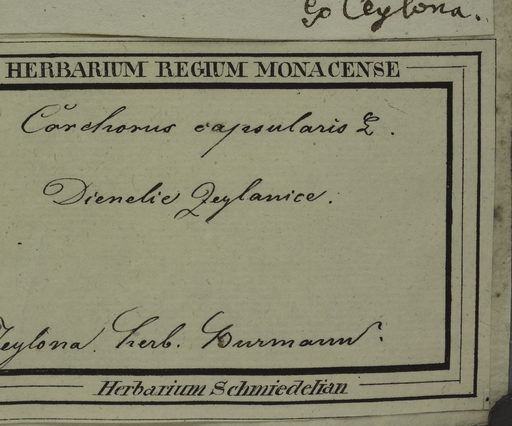 Ex Ceylona.
HERBARIUM REGIUM MONACENSE
Corchorus capsularis L.
Dienelie Zeylanice.
Zeylona. herb. Burmann.
Herbarium Schmiedelian